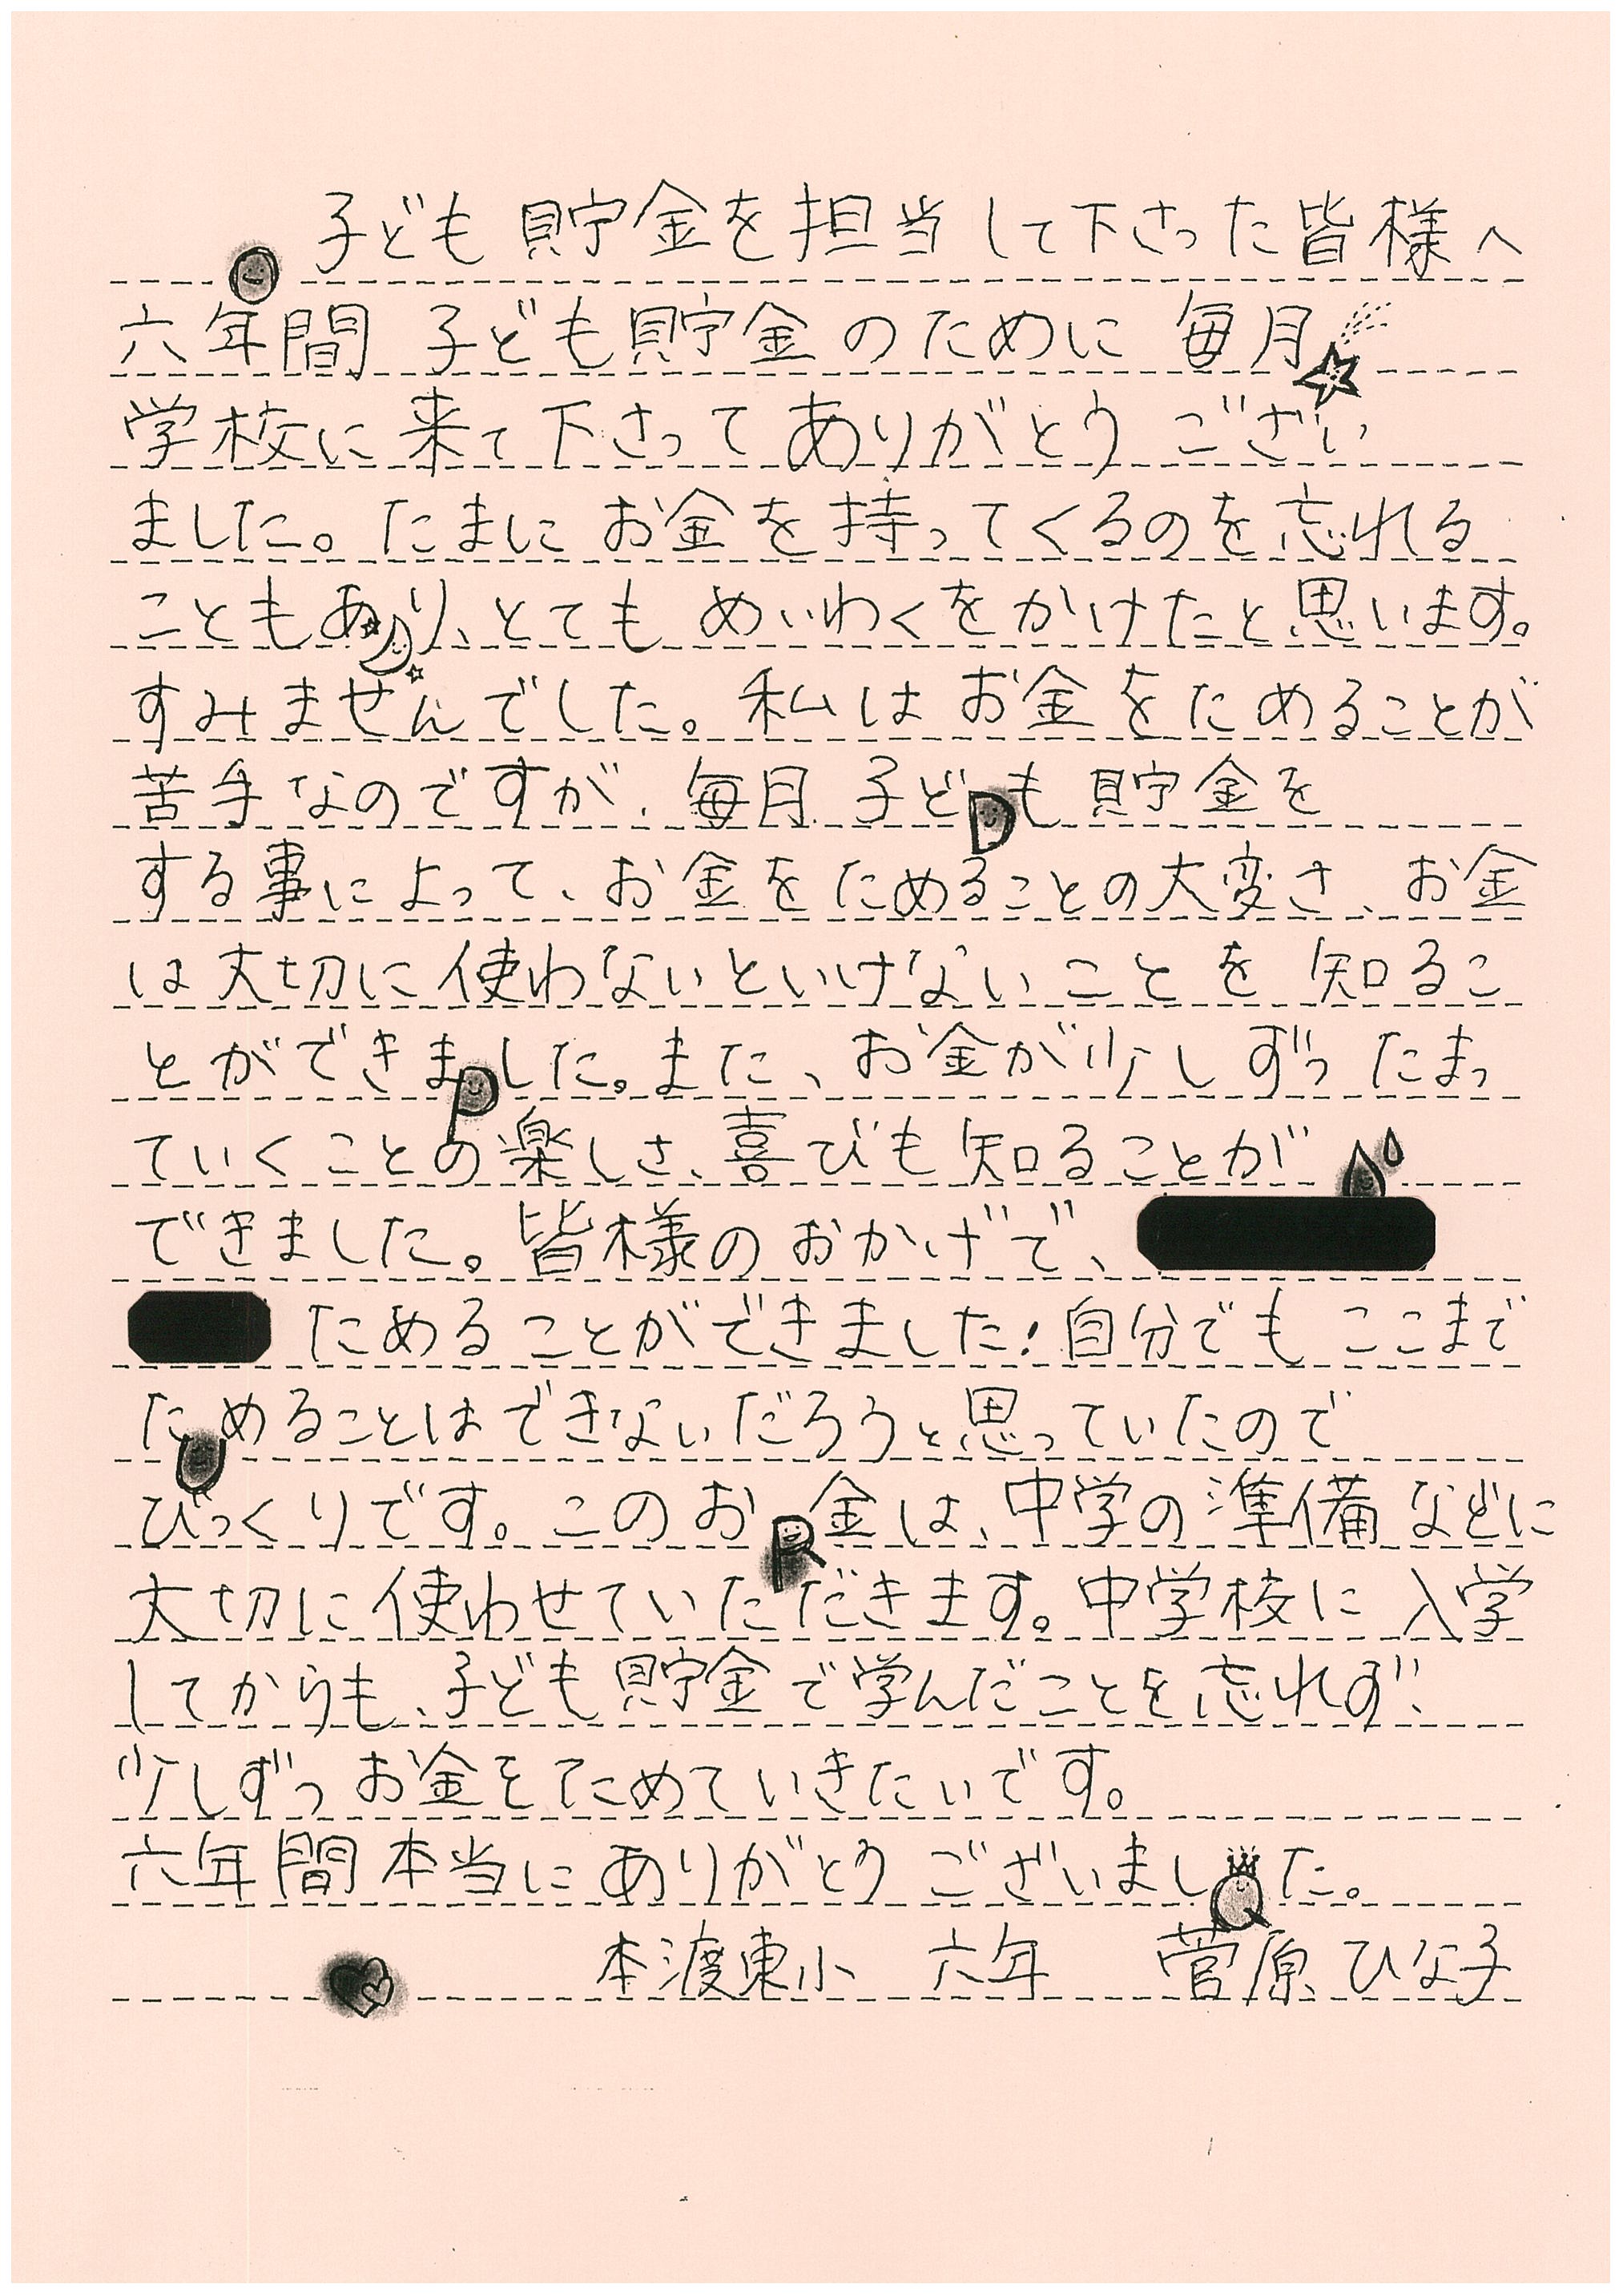 子ども貯金を担当して下さった皆様へ
六年間 子ども貯金のために 毎月
学校に来て下さってありがとうござい
ました。たまにお金を持ってくるのを忘れる
こともあり、とても めいわくをかけたと思います。
すみませんでした。私は お金をためることが
苦手なのですが、毎月 子ども 貯金を
する事によって、お金をためることの大変さ、お金
は大切に使わないといけないことを 知るこ
とができました。また、お金が少しずつ たまっ
ていくことの楽しさ、喜びも知ることが
できました。皆様のおかげで、
ためることができました!自分でもここまで
ためることはできないだろうと思っていたので
びっくりです。このお金は、中学の準備などに
大切に使わせていただきます。中学校に入学
してからも、子ども貯金で学んだことを忘れず、
少しずつお金をためていきたいです。
六年間本当にありがとうございました。
本渡東小 六年 菅原ひな子